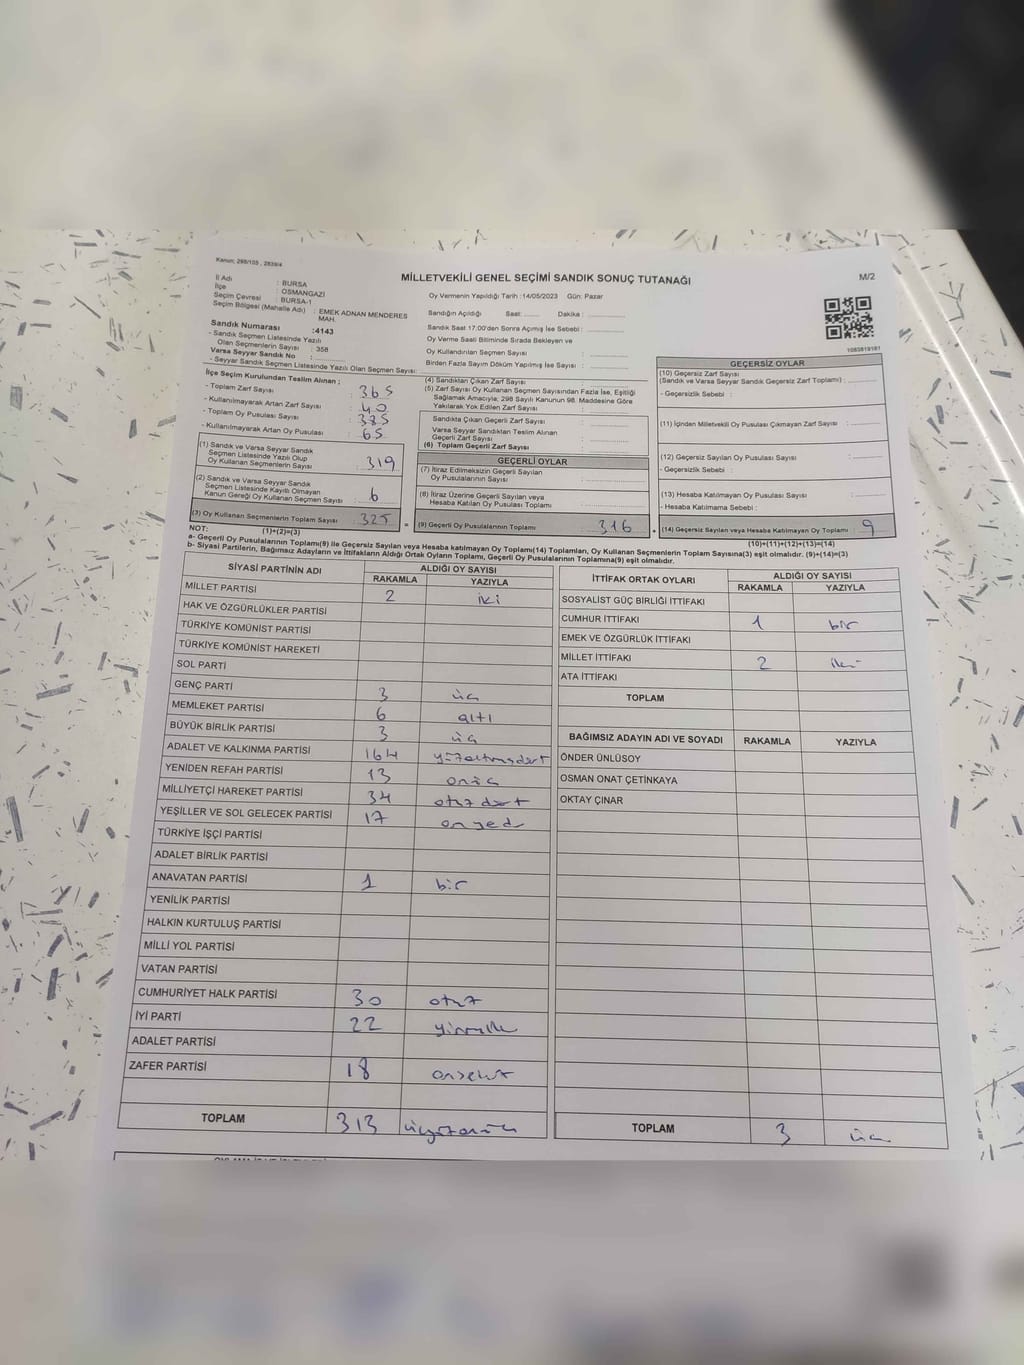 Kanun; 298/105 , 2839/4
MİLLETVEKİLİ GENEL SEÇİMİ SANDIK SONUÇ TUTANAĞI
M/2
İl Adı : BURSA
İlçe : OSMANGAZİ
Seçim Çevresi : BURSA-1
Seçim Bölgesi (Mahalle Adı) : EMEK ADNAN MENDERES MAH.
Sandık Numarası :4143
- Sandık Seçmen Listesinde Yazılı
Olan Seçmenlerin Sayısı : 358
Varsa Seyyar Sandık No :
- Seyyar Sandık Seçmen Listesinde Yazılı Olan Seçmen Sayısı:
Oy Vermenin Yapıldığı Tarih :14/05/2023 Gün: Pazar
Sandığın Açıldığı Saat: Dakika :
Sandık Saat 17:00'den Sonra Açımış İse Sebebi :
Oy Verme Saati Bitiminde Sırada Bekleyen ve
Oy Kullandırılan Seçmen Sayısı :
Birden Fazla Sayım Döküm Yapılmış İse Sayısı :
1083819181
İlçe Seçim Kurulundan Teslim Alınan ;
- Toplam Zarf Sayısı : 365
- Kullanılmayarak Artan Zarf Sayısı : 40
- Toplam Oy Pusulası Sayısı : 385
- Kullanılmayarak Artan Oy Pusulası : 65
(1) Sandık ve Varsa Seyyar Sandık
Seçmen Listesinde Yazılı Olup
Oy Kullanan Seçmenlerin Sayısı : 319
(2) Sandık ve Varsa Seyyar Sandık
Seçmen Listesinde Kayıtlı Olmayan
Kanun Gereği Oy Kullanan Seçmen Sayısı : 6
(3) Oy Kullanan Seçmenlerin Toplam Sayısı : 325
(1)+(2)=(3)
(4) Sandıktan Çıkan Zarf Sayısı :
(5) Zarf Sayısı Oy Kullanan Seçmen Sayısından Fazla İse, Eşitliği
Sağlamak Amacıyla; 298 Sayılı Kanunun 98. Maddesine Göre
Yakılarak Yok Edilen Zarf Sayısı :
Sandıkta Çıkan Geçerli Zarf Sayısı :
Varsa Seyyar Sandıktan Teslim Alınan
Geçerli Zarf Sayısı :
(6) Toplam Geçerli Zarf Sayısı :
GEÇERLİ OYLAR
(7) İtiraz Edilmeksizin Geçerli Sayılan
Oy Pusulalarının Sayısı :
(8) İtiraz Üzerine Geçerli Sayılan veya
Hesaba Katılan Oy Pusulası Toplamı :
= (9) Geçerli Oy Pusulalarının Toplamı : 316 +
GEÇERSİZ OYLAR
(10) Geçersiz Zarf Sayısı
(Sandık ve Varsa Seyyar Sandık Geçersiz Zarf Toplamı) :
- Geçersizlik Sebebi :
(11) İçinden Milletvekili Oy Pusulası Çıkmayan Zarf Sayısı :
(12) Geçersiz Sayılan Oy Pusulası Sayısı :
- Geçersizlik Sebebi :
(13) Hesaba Katılmayan Oy Pusulası Sayısı :
- Hesaba Katılmama Sebebi :
(14) Geçersiz Sayılan veya Hesaba Katılmayan Oy Toplamı : 9
(10)+(11)+(12)+(13)=(14)
NOT:
a- Geçerli Oy Pusulalarının Toplamı(9) ile Geçersiz Sayılan veya Hesaba katılmayan Oy Toplamı(14) Toplamları, Oy Kullanan Seçmenlerin Toplam Sayısına(3) eşit olmalıdır. (9)+(14)=(3)
b- Siyasi Partilerin, Bağımsız Adayların ve İttifakların Aldığı Ortak Oyların Toplamı, Geçerli Oy Pusulalarının Toplamına(9) eşit olmalıdır.
SİYASİ PARTİNİN ADI ALDIĞI OY SAYISI
RAKAMLA YAZIYLA
MİLLET PARTİSİ 2 iki
HAK VE ÖZGÜRLÜKLER PARTİSİ
TÜRKİYE KOMÜNİST PARTİSİ
TÜRKİYE KOMÜNİST HAREKETİ
SOL PARTİ
GENÇ PARTİ 3 üç
MEMLEKET PARTİSİ 6 altı
BÜYÜK BİRLİK PARTİSİ 3 üç
ADALET VE KALKINMA PARTİSİ 164 yüzaltmışdört
YENİDEN REFAH PARTİSİ 13 onüç
MİLLİYETÇİ HAREKET PARTİSİ 34 otuz dört
YEŞİLLER VE SOL GELECEK PARTİSİ 17 onyedi
TÜRKİYE İŞÇİ PARTİSİ
ADALET BİRLİK PARTİSİ
ANAVATAN PARTİSİ 1 bir
YENİLİK PARTİSİ
HALKIN KURTULUŞ PARTİSİ
MİLLİ YOL PARTİSİ
VATAN PARTİSİ
CUMHURİYET HALK PARTİSİ 30 otuz
İYİ PARTİ 22 yirmiiki
ADALET PARTİSİ
ZAFER PARTİSİ 18 onsekiz
TOPLAM 313 üçyüzonüç
İTTİFAK ORTAK OYLARI ALDIĞI OY SAYISI
RAKAMLA YAZIYLA
SOSYALİST GÜÇ BİRLİĞİ İTTİFAKI
CUMHUR İTTİFAKI 1 bir
EMEK VE ÖZGÜRLÜK İTTİFAKI
MİLLET İTTİFAKI 2 iki
ATA İTTİFAKI
TOPLAM
BAĞIMSIZ ADAYIN ADI VE SOYADI RAKAMLA YAZIYLA
ÖNDER ÜNLÜSOY
OSMAN ONAT ÇETİNKAYA
OKTAY ÇINAR
TOPLAM 3 üç